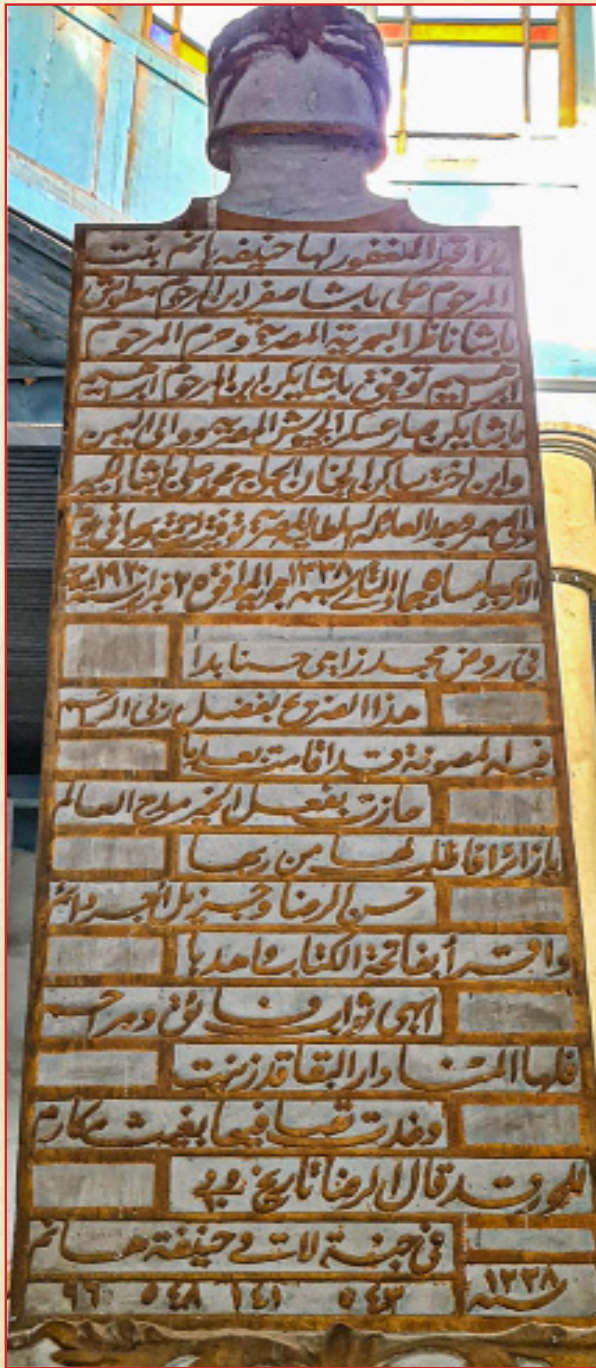 هذا قبر المغفور لها حنيفه هانم بنت
المرحوم على باشا صفر ابن المرحوم مطوش
باشا ناظر البحرية المصرية وحرم المرحوم
ابراهيم توفيق باشا يكن ابن المرحوم ابراهيم
باشا يكن صارعسكر الجيوش المصرية ووالى اليمن
وابن اخت ساكن الجنان الحاج محمد على باشا الكبير
والى مصر ومجد العائله السلطانيه المصرية توفيت فى يوم
الاربعاء جماد الثانى سنة ١٣٣٨ هجرية الموافق ٢٥ فبراير سنة ١٩٢٠
فى روض مجد زاهى حسنا بدا
هذا الضريح بفضل ربى الراحم
فيه لمصونة قد اقامت بعدما
حازت بفعل الخير مدح العالم
يا زائرا فاطلب لها من ربها
حسن الرضا وجزيل أجر دائم
واقرأ بفاتحة الكتاب واهدها
ابهى ثواب فائق ومراحم
فلها الهنا دار البقا قد زينت
وغدت بها فيها بغيث مكارم
للحور قد قال الرضا تاريخ وبى
فى جنة لاتت وحنيفة هانم
سنة ١٣٣٨
٥٤٣ ١٤١ ٥٤٨ ٩٦